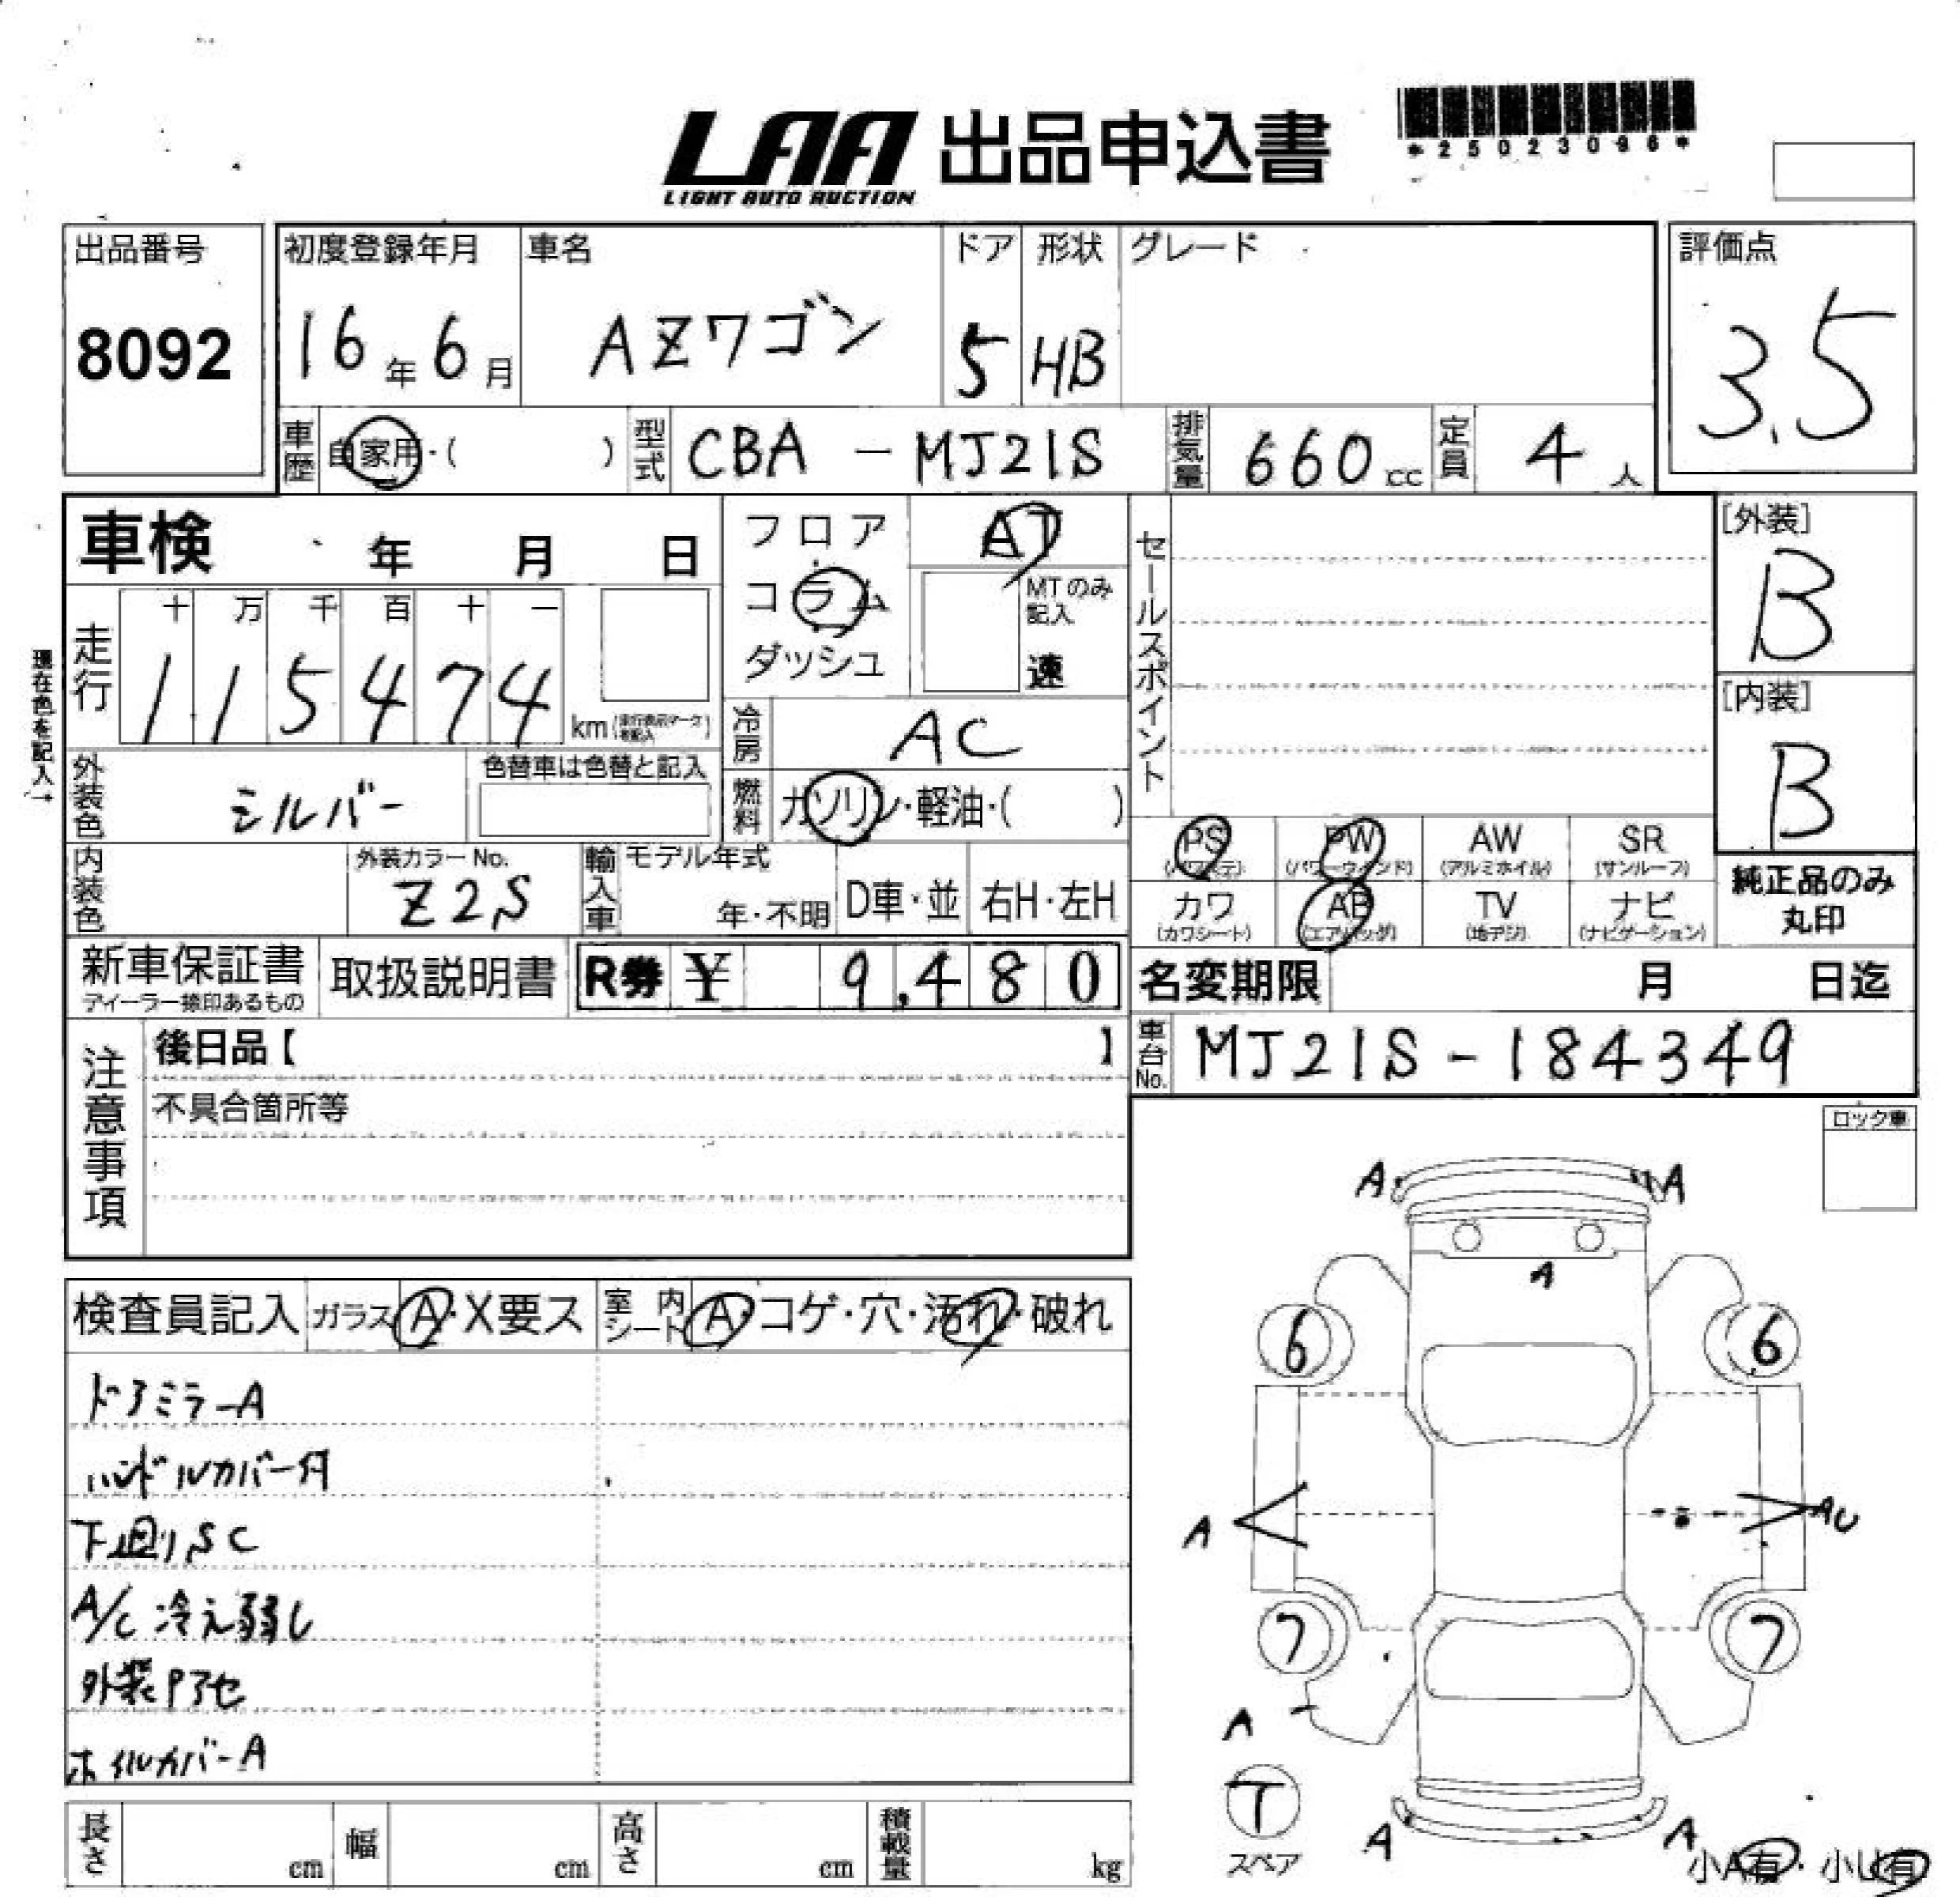 LAA 出品申込書
LIGHT AUTO AUCTION
*25023096*
出品番号
8092
初度登録年月
16年 6月
車名
AZワゴン
ドア
5
形状
HB
グレード
評価点
3.5
車歴 自家用・( )
型式 CBA - MJ21S
排気量 660 cc
定員 4 人
車検 年 月 日
フロア
コラム
ダッシュ
AT
MTのみ記入
速
セールスポイント
[外装]
B
[内装]
B
現在色を記入→
走行
十 万 千 百 十 一
1 1 5 4 7 4 km
冷房 AC
外装色 シルバー
色替車は色替と記入
燃料 ガソリン・軽油・( )
PS (パワステ)
PW (パワーウインド)
AW (アルミホイル)
SR (サンルーフ)
カワ (カワシート)
AB (エアバッグ)
TV (地デジ)
ナビ (ナビゲーション)
純正品のみ
丸印
内装色
外装カラーNo.
Z2S
輸入車
モデル年式
年・不明
D車・並
右H・左H
新車保証書
ディーラー捺印あるもの
取扱説明書
R券 ¥ 9,480
名変期限 月 日迄
注意事項
後日品【 】
不具合箇所等
車台No. MJ21S-184349
ロック車
検査員記入
ガラス A・X要ス
室内シート A・コゲ・穴・汚れ・破れ
ドアミラーA
ハンドルカバー付
下廻りSC
A/C 冷え弱し
外装Pアセ
ホイルカバーA
A A
A
6 6
A AU
7 7
A
T
スペア
A A
小A有・小U有
長さ cm
幅 cm
高さ cm
積載量 kg